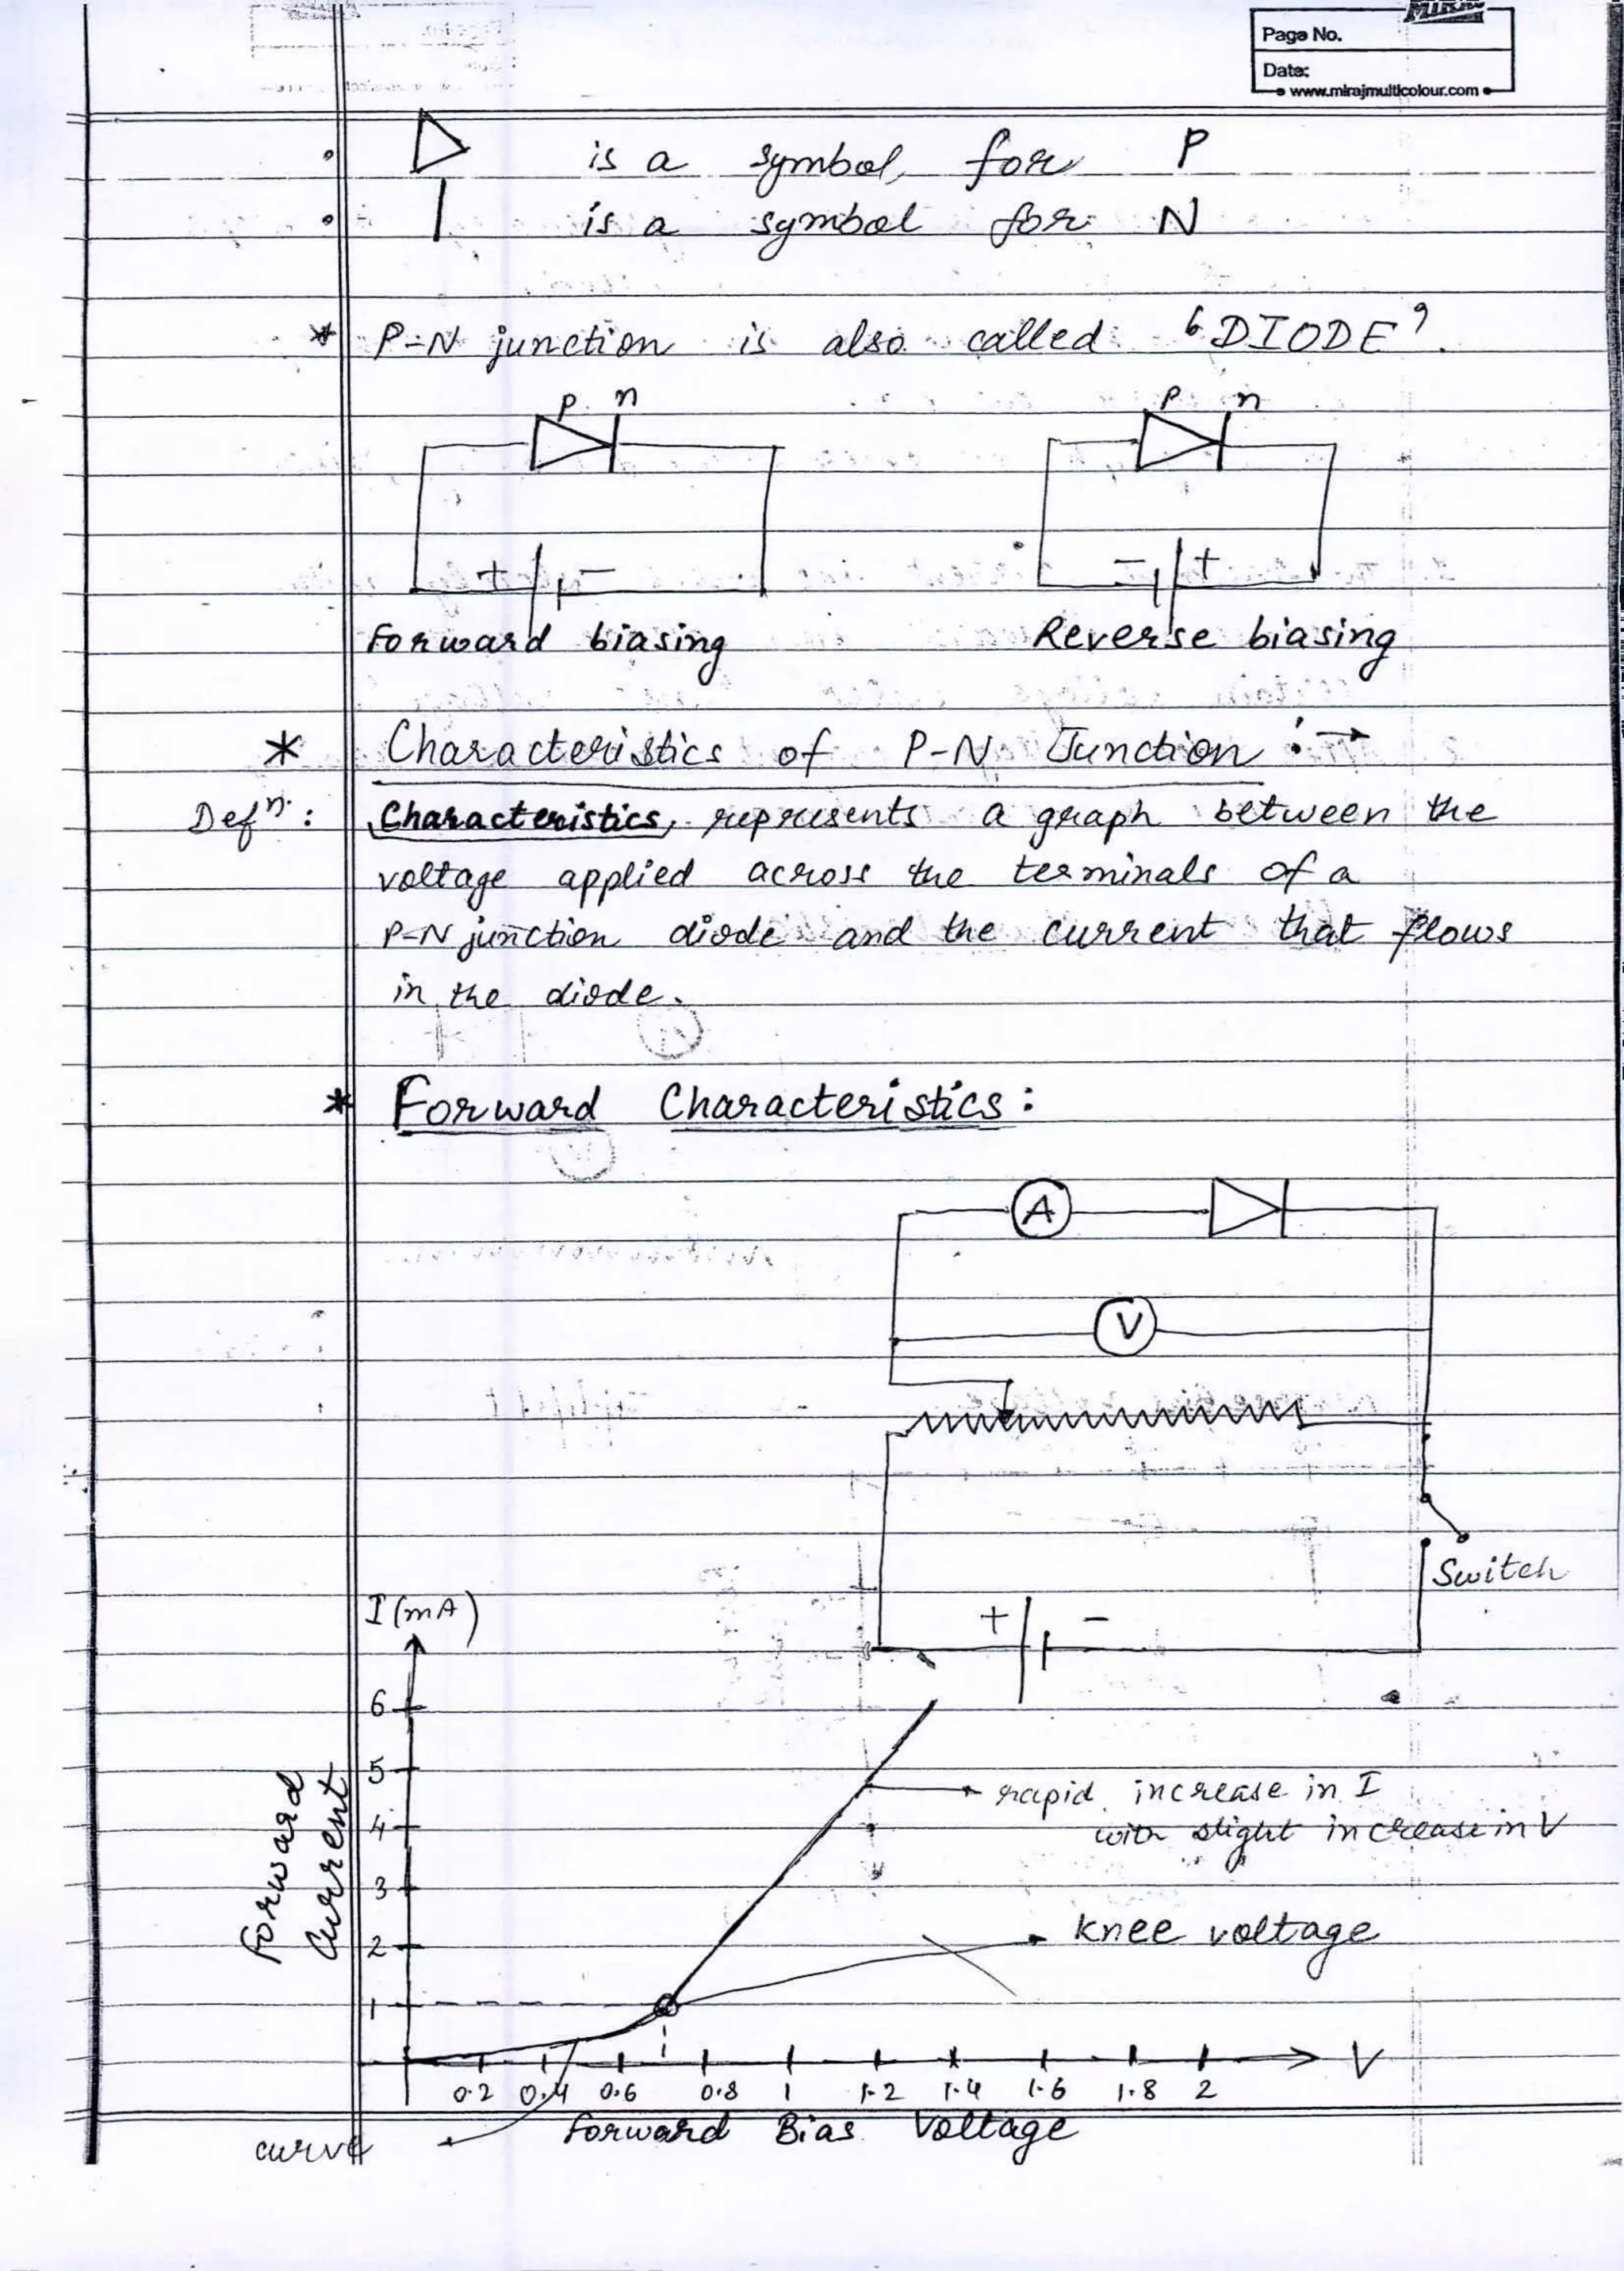 MIRAJ
Page No.
Date:
www.mirajmulticolour.com
is a symbol for P
is a symbol for N
* P-N junction is also called 'DIODE'.
P n
P n
+ -
- +
Forward biasing
Reverse biasing
* Characteristics of P-N Junction :→
Defn: Characteristics, represents a graph between the
voltage applied across the terminals of a
P-N junction diode and the current that flows
in the diode.
* Forward Characteristics:
A
V
Switch
+ -
I (mA)
6
5
4
3
2
1
Forward
Current
rapid increase in I
with slight increase in V
knee voltage
V
0.2 0.4 0.6 0.8 1 1.2 1.4 1.6 1.8 2
Forward Bias Voltage
curve